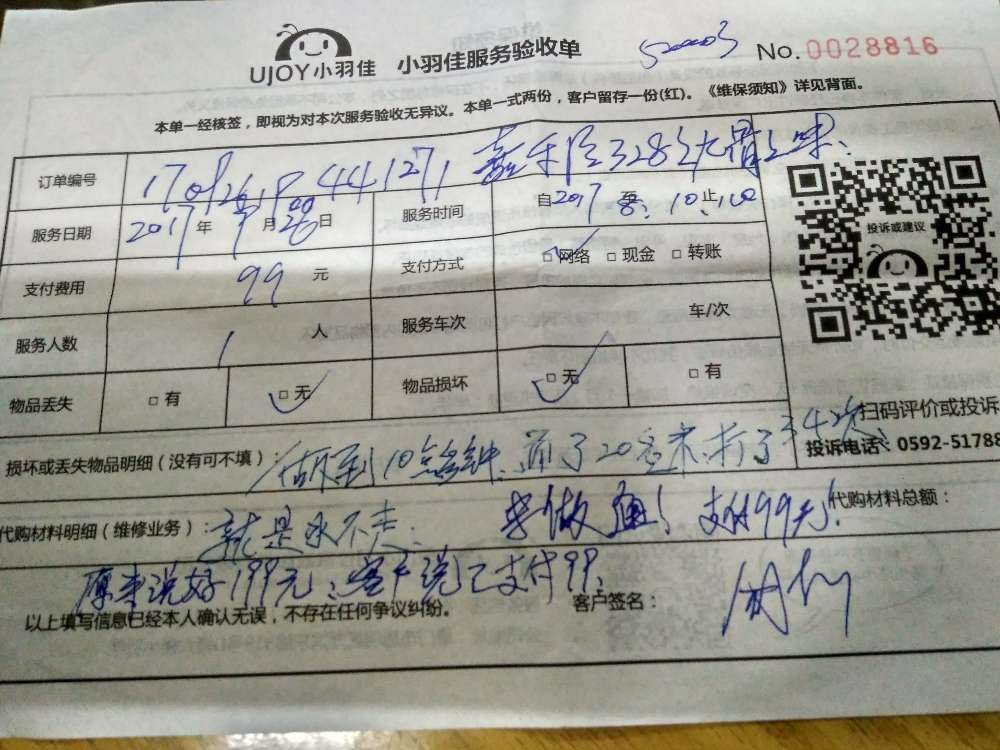 UJOY小羽佳 小羽佳服务验收单 No.0028816
本单一经核签，即视为对本次服务验收无异议。本单一式两份，客户留存一份(红)。《维保须知》详见背面。
订单编号
服务日期 2017年 9月28日 服务时间 自2017 至 止
支付费用 99 元 支付方式 □网络 □现金 □转账
投诉或建议
服务人数 1 人 服务车次 车/次
物品丢失 □有 □无 物品损坏 □无 □有
扫码评价或投诉
投诉电话：0592-51788
损坏或丢失物品明细（没有可不填）： 做到10点多钟 20 打了 4次
代购材料明细（维修业务）： 就是水不走 做通！支付99元！ 代购材料总额：
原来说好199元、客户说已支付99.
以上填写信息已经本人确认无误，不存在任何争议纠纷。 客户签名：